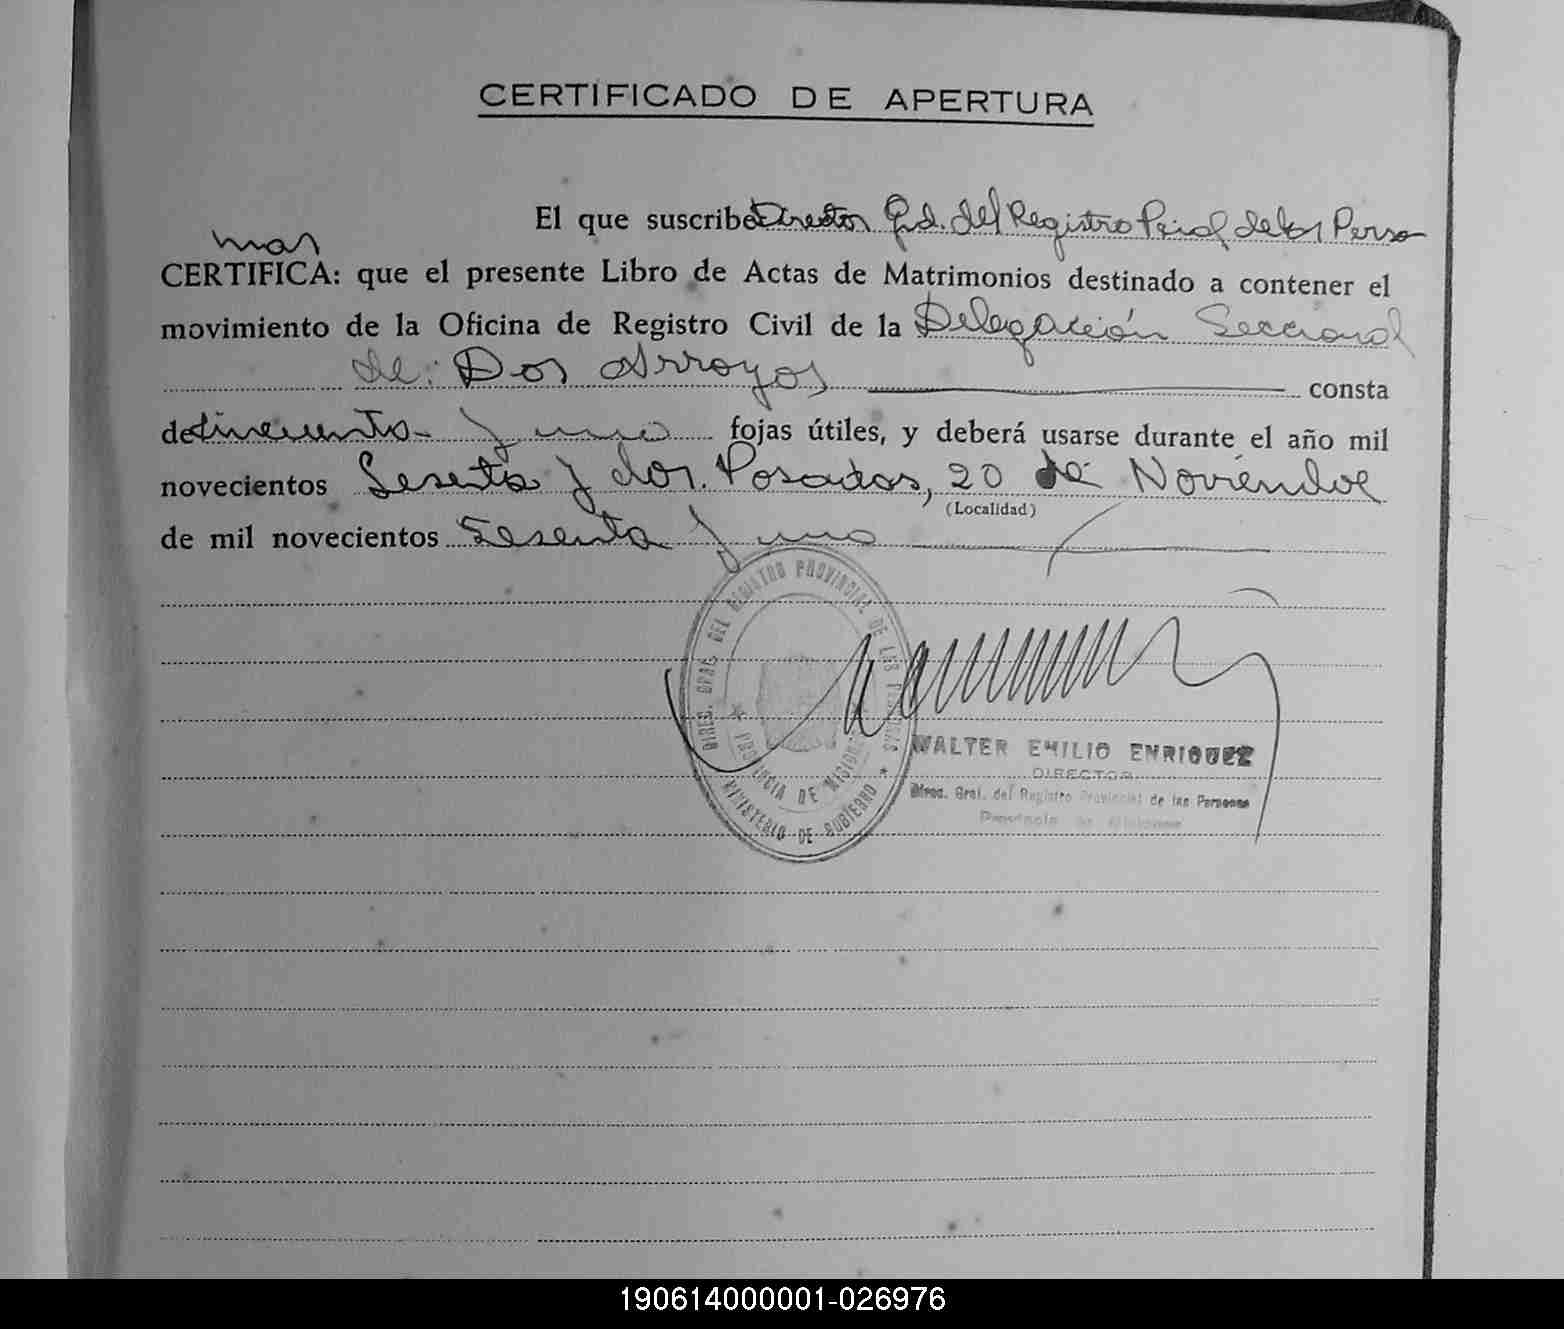 CERTIFICADO DE APERTURA
El que suscribe Director Gral. del Registro Pcial de las Perso
nas
CERTIFICA: que el presente Libro de Actas de Matrimonios destinado a contener el
movimiento de la Oficina de Registro Civil de la Delegación Seccional
de: Dos Arroyos consta
de cincuenta y uno fojas útiles, y deberá usarse durante el año mil
novecientos Sesenta y dos. Posadas, 20 de Noviembre
(Localidad)
de mil novecientos Sesenta y uno
DIREC. GRAL. DEL REGISTRO PROVINCIAL DE LAS PERSONAS
PROVINCIA DE MISIONES
MINISTERIO DE GOBIERNO
WALTER EMILIO ENRIQUEZ
DIRECTOR
Direc. Gral. del Registro Provincial de las Personas
Provincia de Misiones
190614000001-026976